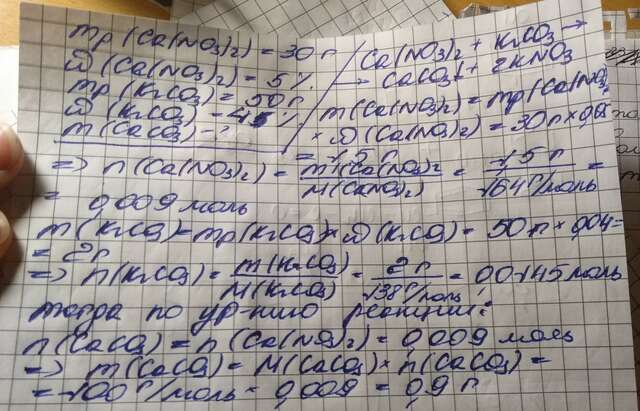 mр (Ca(NO3)2) = 30 г
ω (Ca(NO3)2) = 5%
mр (K2CO3) = 50 г
ω (K2CO3) - 4%
m (CaCO3) - ?
Ca(NO3)2 + K2CO3 →
→ CaCO3↓ + 2KNO3
m(Ca(NO3)2) = mр(Ca(NO3)2)
× ω (Ca(NO3)2) = 30 г × 0,05
= 1,5 г
=> n(Ca(NO3)2) = m(Ca(NO3)2) / M(Ca(NO3)2) = 1,5 г / 164 г/моль =
= 0,009 моль
m(K2CO3) = mр(K2CO3) × ω(K2CO3) = 50 г × 0,04 =
= 2 г
=> n(K2CO3) = m(K2CO3) / M(K2CO3) = 2 г / 138 г/моль = 0,0145 моль
тогда по ур-нию реакции:
n(CaCO3) = n(Ca(NO3)2) = 0,009 моль
=> m(CaCO3) = M(CaCO3) × n(CaCO3) =
= 100 г/моль × 0,009 = 0,9 г